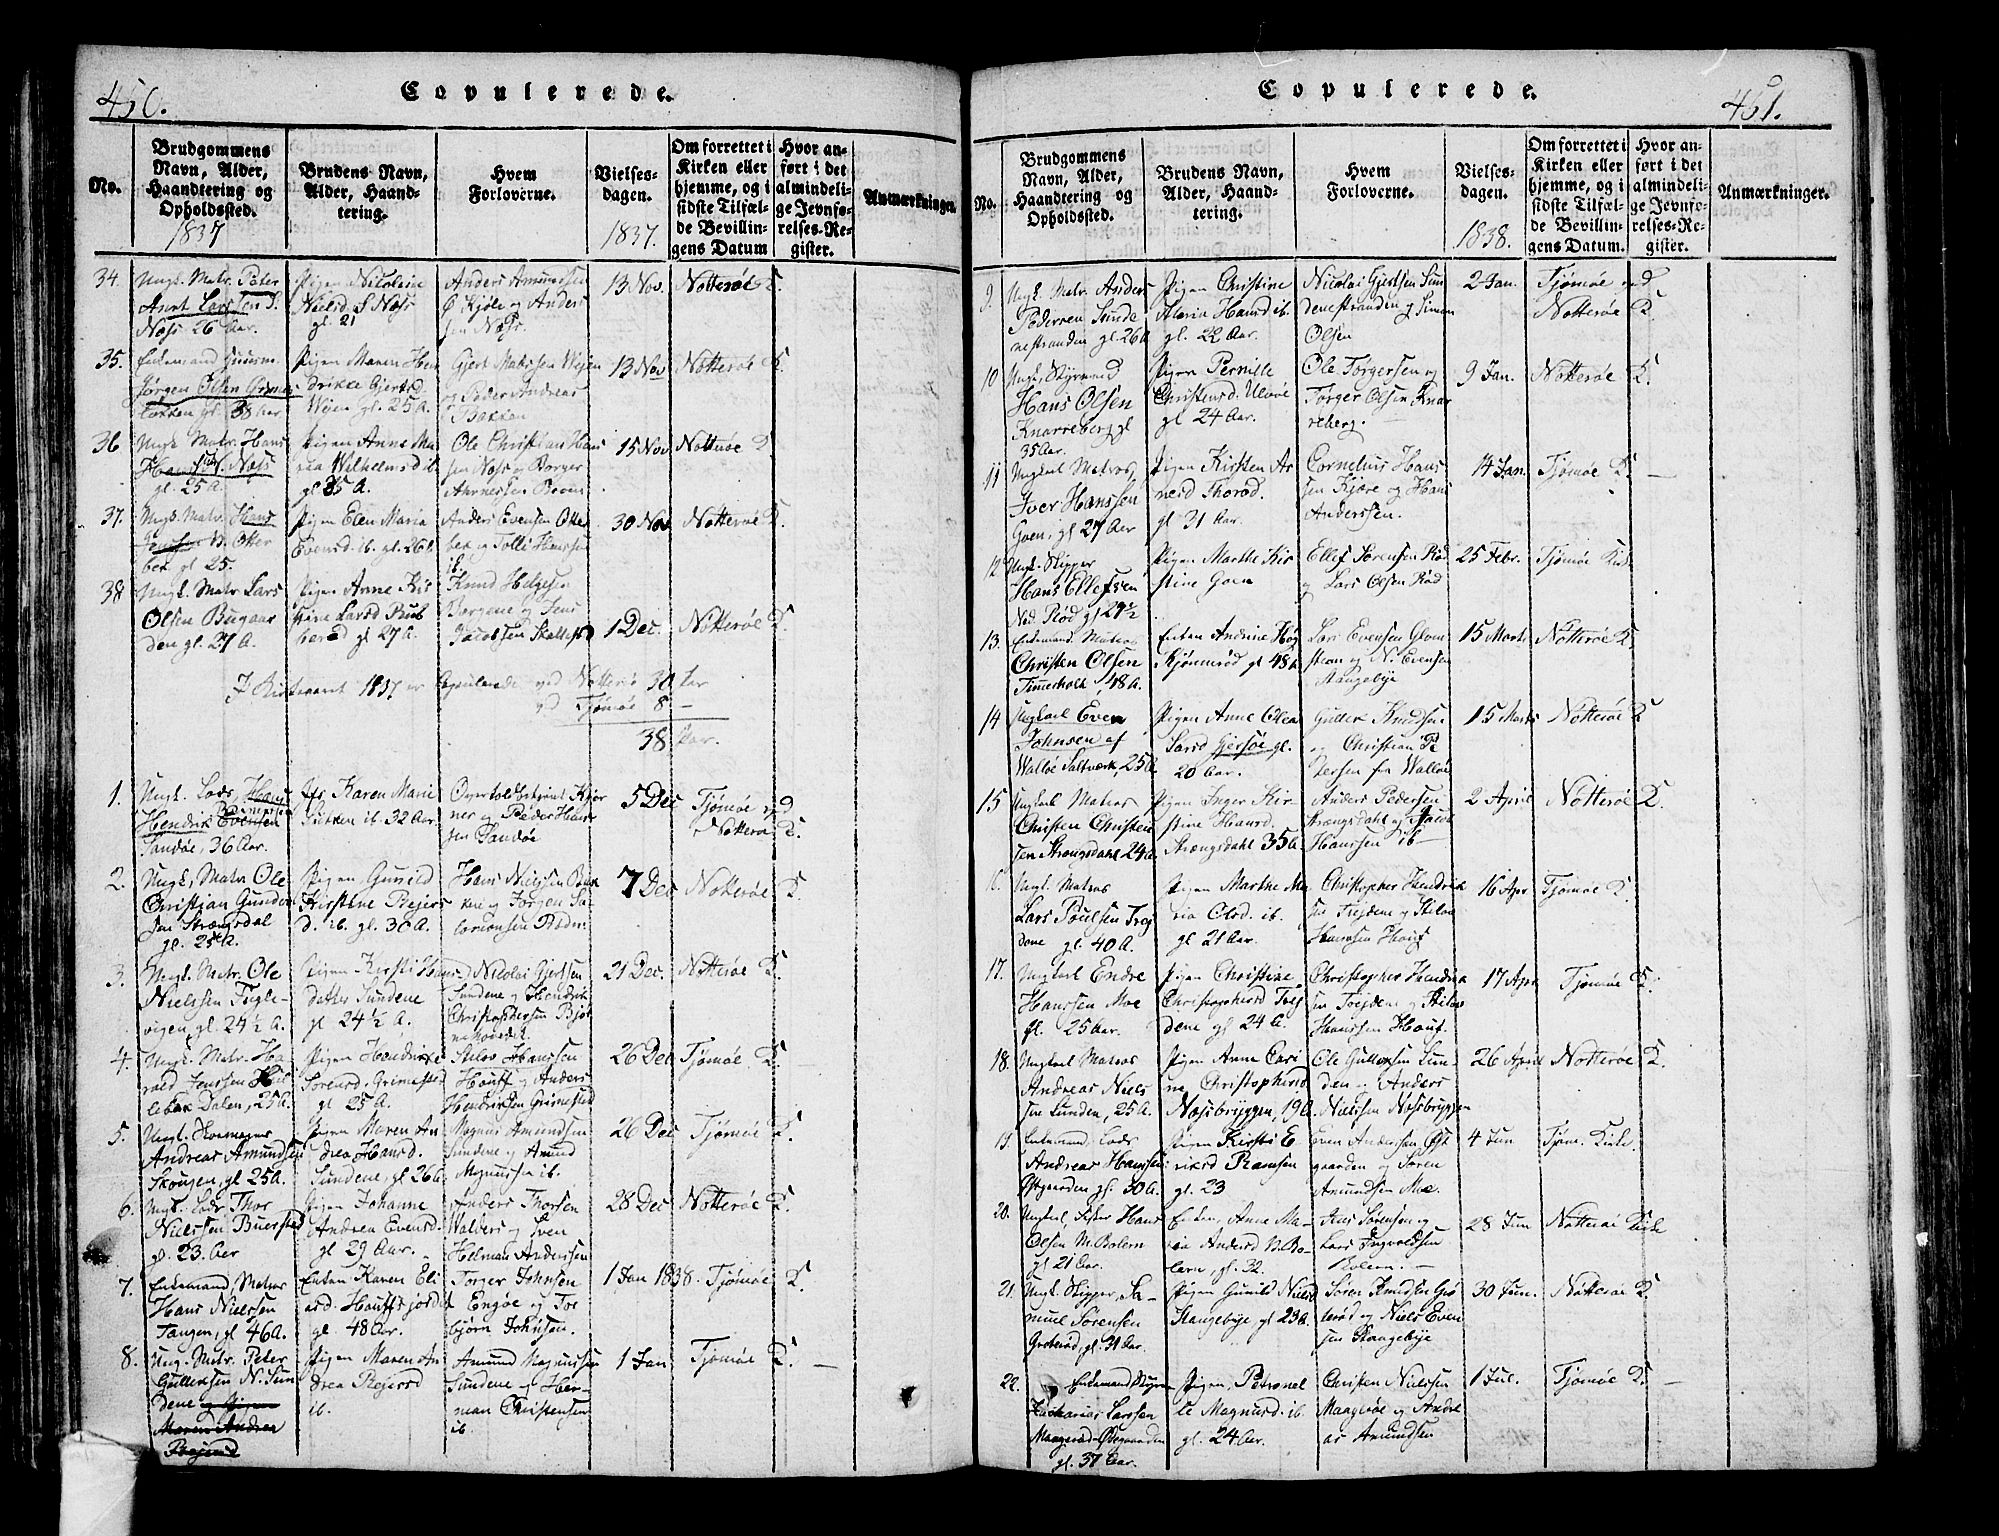 450.
Copulerede.
No.
Brudgommens
Navn, Alder,
Haandtering og
Opholdssted.
1837
Brudens Navn,
Alder, Haand-
tering.
Hvem
Forloverne.
Vielses-
dagen.
1837.
Om forrettet i
Kirken eller
hjemme, og i
sidste Tilfæl-
de Bevillin-
gens Datum
Hvor an-
ført i det
almindeli-
ge Jevnfø-
relses-Re-
gister.
Anmærkninger.
34.
Ungk. Matr. Peter
Anrt Larssen S.
Næss 26 Aar.
Pigen Nicoleine
Nielsd S Næss
gl. 21
Anders Amundsen
Ø Kjøle og Anders
sen Næss.
13 Nov.
Nøtterøe K.
35.
Enkemand Huusm.
Jørgen Olsen
gl. 38 aar
Pigen Maren Hen
drikke Gjertsd
Wejen gl. 25 A.
Gjert Mathssen Wejen
og Peder Andreas
Bakken
13 Nov
Nøtterøe K.
36
Ungk. Matr. Hans
Hanssen N. Næss
gl. 25 A.
Pigen Anne Ma
ria Wilhelmsd ib
gl 35 A.
Ole Christian Hans
sen Næss og Borger
15 Nov
Nøtterøe K
37.
Ungk. Matr. Hans
N. Otter
bek gl 25.
Pigen Elen Maria
Evensd ib. gl. 26 A.
Anders Evensen Otter
bek og Tolli Hanssen
ib.
30 Nov
Nøtterøe K.
38
Ungk. Matr. Lars
Olsen Bugaar
den gl. 27 A.
Pigen Anne Kir
stine Larsd Bub
berød gl 27 A.
Knud Helgesen
Borgene og Jens
Jacobsen Skallestd
1 Dec.
Nøtterøe K.
I Kirkeaaret 1837 er Copulerede ved Nøtterøe 30 Par
ved Tjømøe 8. –
38 Par.
1.
Ungk. Lods Hans
Hendrik Evensen
Sandøe, 36 Aar.
Karen Marie
ib. 32 Aar
Overtoldbetjent Kjør
ner og Peder Hans
sen Sandøe
5 Dec
Tjømøe ved
Nøtterø K.
2.
Ungk. Matr. Ole
Christian Gunder
sen Strængsdal
gl. 25 A.
Pigen Gunild
Kirstine Rejers
d. ib. gl. 30 A.
Hans Nielssen Bak
ken og Jørgen Za-
7 Dec
Nøtterøe K.
3.
Ungk. Matr. Ole
Nielssen Fugle-
vigen gl. 24 ½ A.
Pigen Kirsti Hans
datter Sundene
gl 24 ½ A.
Nicolai Gjertsen
Sundene og Hendrik
Christophersen Bjør
nehovedet.
21 Dec.
Nøtterøe K.
4.
Ungk. Matr. Ha
rald Jenssen Hul
lebak Dalen, 25 A.
Pigen Hendrikke
Sørensd. Grimestd
gl 25 A.
Stilov Hanssen
Houff og Anders
Hendriksen Grimestad
26 Dec
Tjømøe K.
5.
Ungk.
Andreas Amundsen
Skougen, gl 25 A.
Pigen Maren An
drea Hansd.
Sundene, gl. 26 A.
Magnus Amundsen
Sundene og Amund
Magnussen ib.
26 Dec
Tjømøe K.
6.
Ungk. Lods Thor
Nielssen Buerstad
gl. 23. Aar
Pigen Johanne
Andrea Evensd.
gl 29 Aar.
Anders Thorsen
Walberg og Sven
Helman Anderssen
28 Dec
Nøtterøe K.
7.
Enkemand, Matros
Hans Nielssen
Tangen, gl 46 A.
Enken Karen Eli
asd. Houffsjordet
gl. 48 Aar.
Torger Johnsen
Engøe og Tor
bjørn Johnsen.
1 Jan 1838.
Tjømøe K.
8.
Ung. Matr. Peter
Gulleksen N. Sun
dene og Pigen
Maren Andrea
Rejersd
Pigen Maren An
drea Rejersd
ib.
Amund Magnussen
Sundene og Her-
man Christensen
ib
1 Jan
Tjømøe K. –
Copulerede.
451.
No.
Brudgommens
Navn, Alder,
Haandtering og
Opholdssted.
Brudens Navn,
Alder, Haand-
tering.
Hvem
Forloverne.
Vielses-
dagen.
1838.
Om forrettet i
Kirken eller
hjemme, og i
sidste Tilfæl-
de Bevillin-
gens Datum.
Hvor an-
ført i det
almindeli-
ge Jevnfø-
relses-Re-
gister.
Anmærkninger.
9.
Ungk. Matr. Anders
Pedersen Sunde
nestranden gl. 26 A
Pigen Christine
Maria Hansd ib.
gl. 22 Aar.
Nicolai Gjertsen Sun
denestranden og Simon
Olsen
2 Jan.
Tjømøe ved
Nøtterøe K.
10
Ungk, Styrmand
Hans Olsen
Knarreberg gl
35 Aar.
Pigen Pernille
Christensd. Ulvøe
gl. 24 Aar
Ole Torgersen og
Torger Olsen Knar
reberg. –
9 Jan.
Nøtterøe K.
11
Ungkarl Matros
Iver Hanssen
Goen, gl 27 Aar
Pigen Kirsten Ar
nesd Thorød.
gl 31 Aar.
Cornelius Hans
sen Kjøre og Hans
Anderssen.
14 Jan.
Tjømøe K. –
12
Ungk. Skipper
Hans Ellefsen
Ned Rød gl 29 ½
Pigen Marthe Kir
stine Goen
Ellef Sørensen Rød
og Lars Olsen Rød
25 Febr.
Tjømøe Kirke
13.
Enkemand. Matros
Christen Olsen
Timerholt, 48 A.
Enken Andrine Høg
Kjønnerød gl 48 A
Lars Evensen Glom
stean og N. Evensen
Stangebye
15 Marts
Nøtterøe K.
14
Ungkarl Even
Johnsen af
Walløe Saltværk, 25 A
Pigen Anne Olea
Larsd Gjersøe gl.
20 Aar.
Gullek Knudsen
og Christian Pe
tersen fra Walløe
15 Marts
Nøtterøe K
15
Ungkarl Matros
Christen Christen
sen Strængsdahl 24 A.
Pigen Inger Kir
stine Hansd.
Strængsdahl 35 A.
Anders Pedersen
Strængsdahl og Jacob
Hanssen ib –
2 April
Nøtterøe K.
16.
Ungk. Matros
Lars Poulsen Trej
dene gl. 40 A.
Pigen Marthe Ma
ria Olsd. ib.
gl 21 Aar.
Christopher Hendrik
sen Trejdene og Stilov
Hanssen Houf
16 Apr
Tjømøe K.
17.
Ungkarl Endre
Hanssen Moe
gl. 25 Aar.
Pigen Christine
Christophersd Trej
dene gl 24 A.
Christopher Hendrik
sen Trejdene og Stilov
Hanssen Houf.
17 Apr
Tjømøe K.
18.
Ungkarl Matros
Andreas Niels
sen Sunden, 25 A.
Pigen Anne Cari
ne, Christophersd.
Næsbryggen, 19 A.
Ole Gulleksen Sun-
den og Anders
Nielssen Næsbryggen
26 April
Nøtterøe K.
19
Enkemand, Lods
Andreas Hanssen
Østgaarden gl. 30 A.
Pigen Kirsti E
riksd Ramsen
gl. 23
Even Anderssen Øst
gaarden og Søren
Amundsen Moe.
4 Jun
Tjøm. Kirke
20.
Ungkarl, Fisker Hans
Olsen M. Bolern
gl 21 Aar.
Enken, Anne Ma-
ria Andersd M. Bo-
lern, gl. 32.
Jens Sørensen og
Lars Ingvoldsen
Bolern. –
28 Jun
Nøtterøe Kirke
21.
Ungk. Skipper, Sa-
muel Sørensen
Grøterød, gl. 31 Aar.
Pigen Gunild Nielsd
Stangebye gl 23 A.
Søren Knudsen Grø
terød og Niels Even
sen Stangebye
30 Jun.
Nøtterøe K.
22.
Enkemand Styrm
Zacharias Larssen
Maagerød Ødegaarden
gl. 37 Aar.
Pigen, Petronel
le Magnusd. ib.
gl. 24 Aar.
Christen Nielssen
Maagerøe og Andre
as Amundsen
1 Jul.
Tjømøe K. –